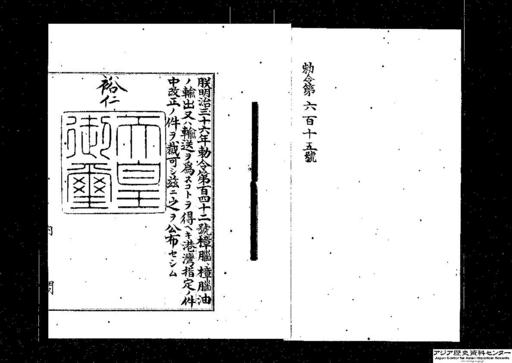 勅令第六百十五號
朕明治三十六年勅令第百四十二號樟腦、樟腦油
ノ輸出又ハ輸送ヲ爲スコトヲ得ヘキ港灣指定ノ件
中改正ノ件ヲ裁可シ茲ニ之ヲ公布セシム
裕仁
天皇
御璽
内閣
アジア歴史資料センター
Japan Center for Asian Historical Records